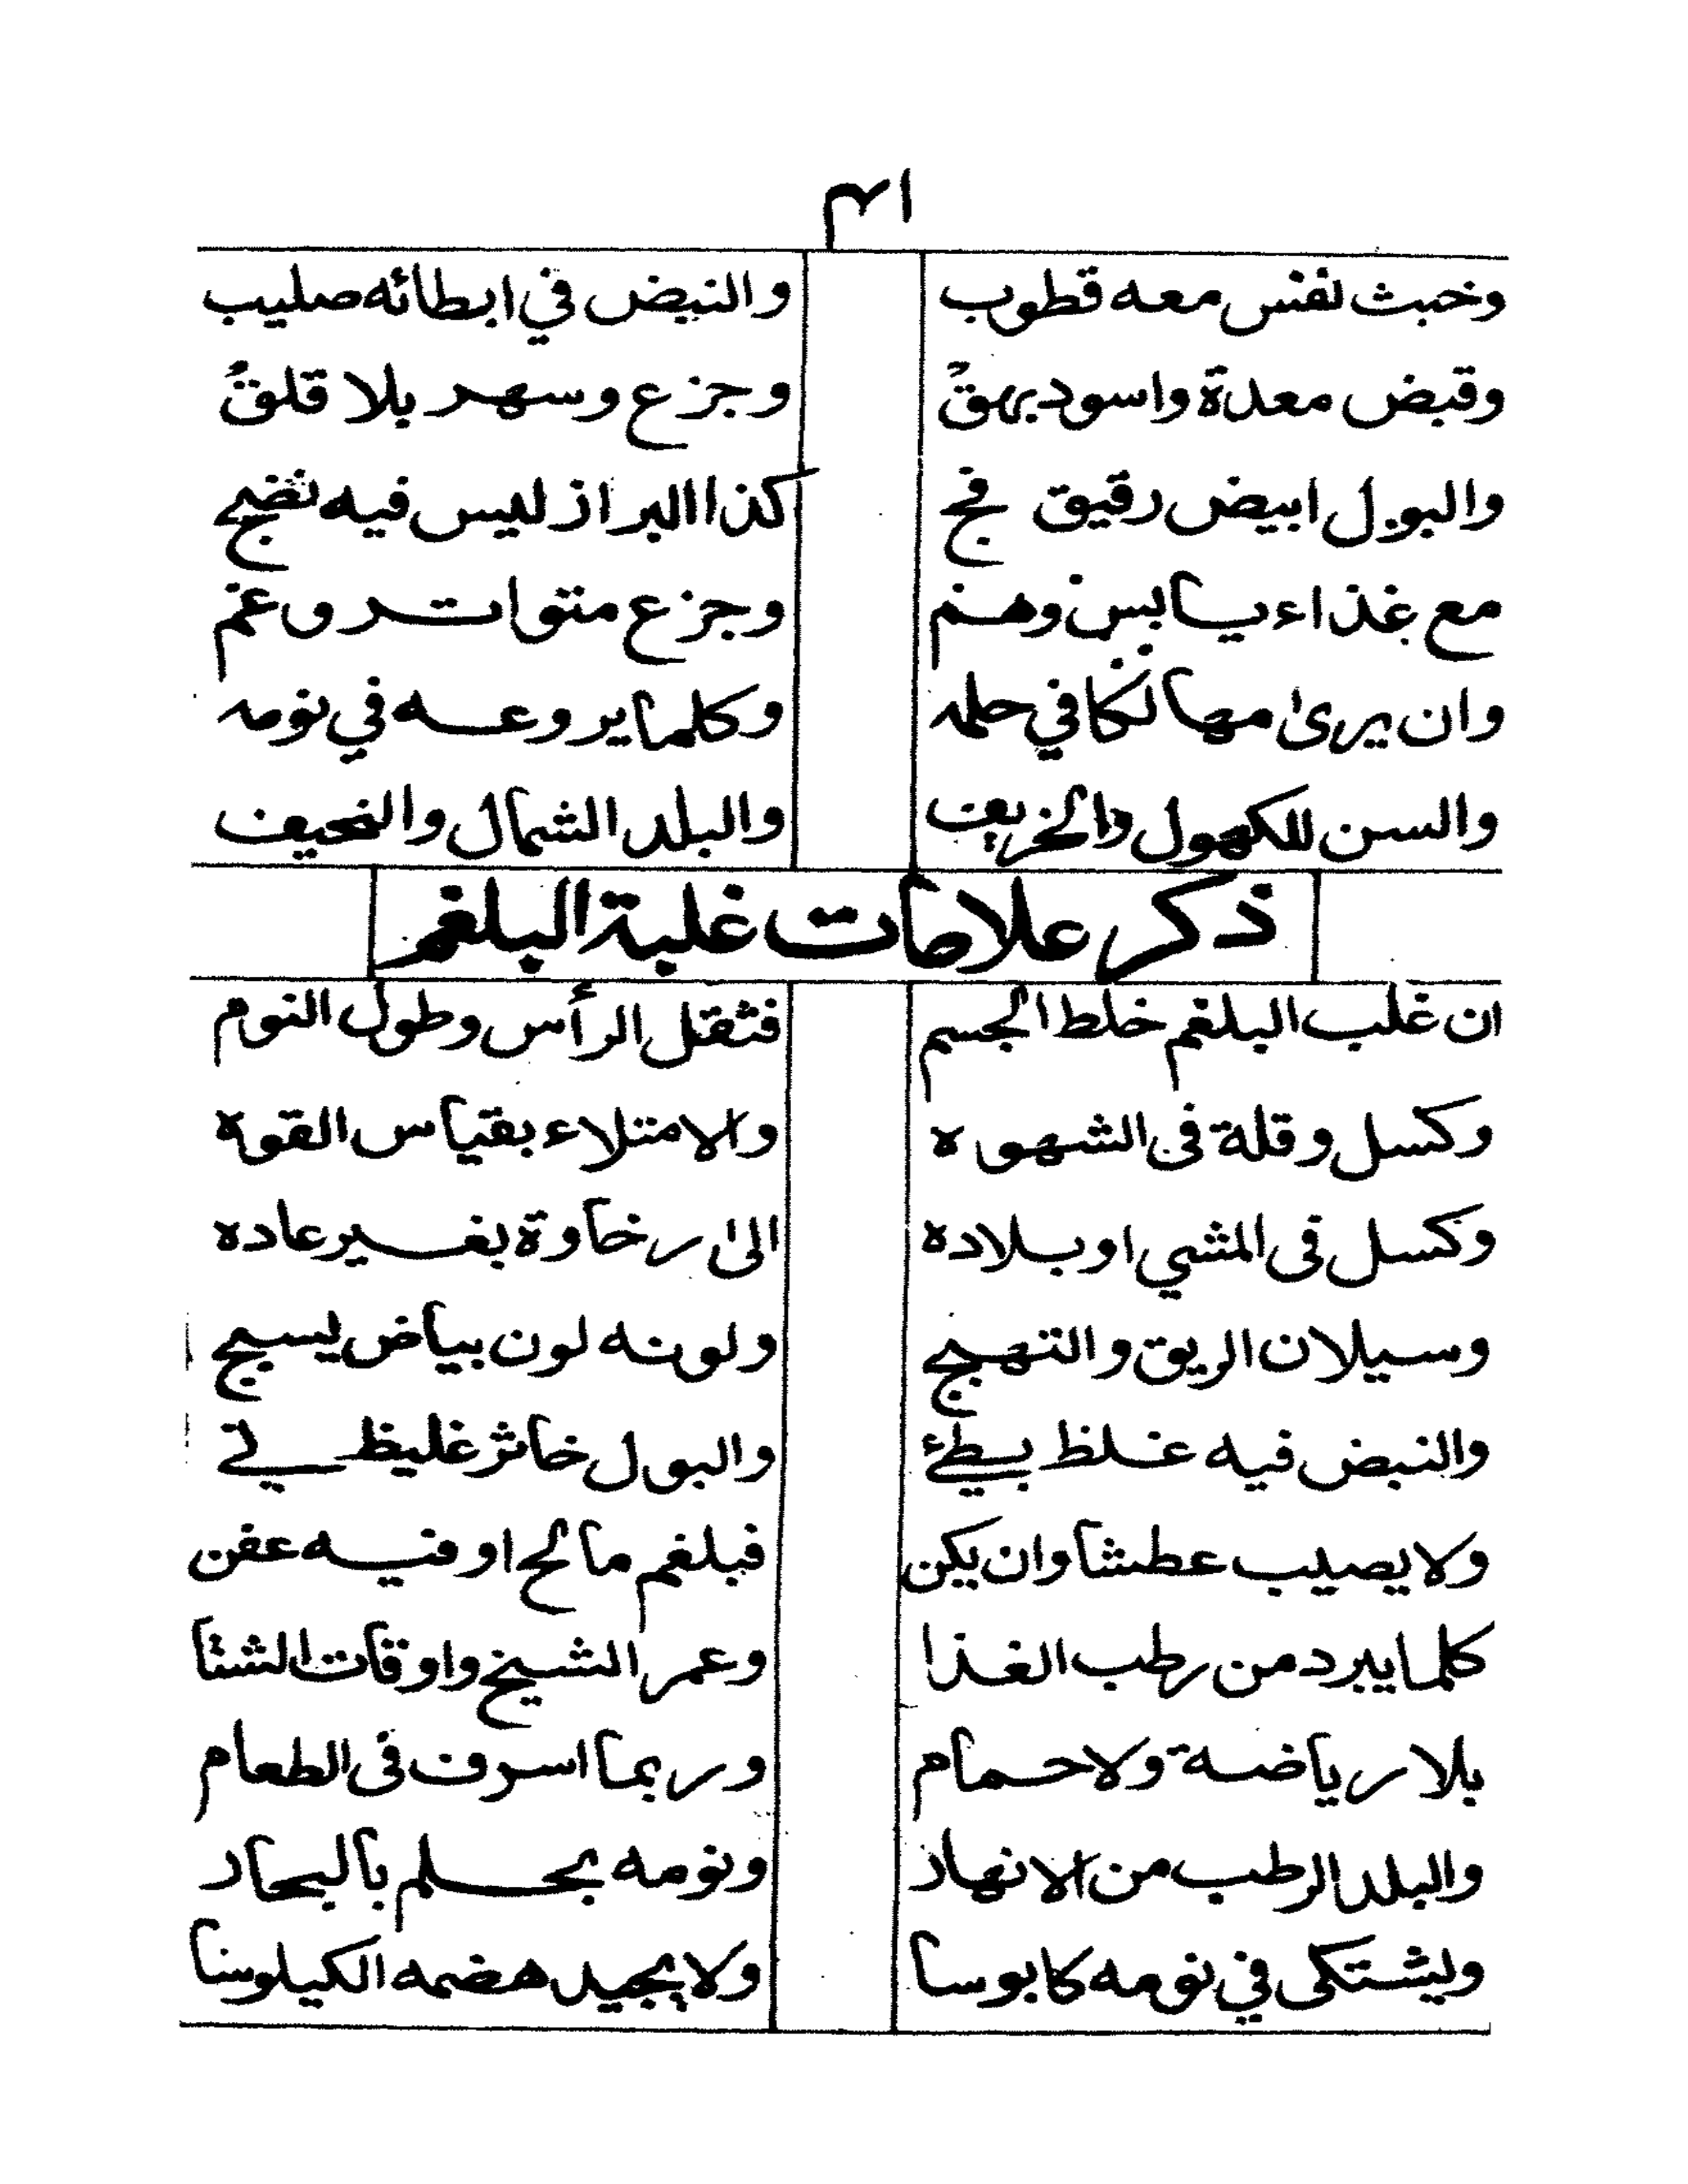 ٣١
وخبث نفس معه قطوب والنبض في ابطائه صليب
وقبض معدة واسود بهقٌ وجزع وسهر بلا قلقٌ
والبول ابيض رقيق فج كذا البراز ليس فيه نضج
مع غذاء يابس وهم وجزع متواتر وغم
وان يرى مهالكا في حلمه وكلما يروعه في نومه
والسن للكهول والخريف والبلد الشمال والنحيف
ذكر علامات غلبة البلغم
ان غلب البلغم خلط الجسم فثقل الرأس وطول النوم
وكسل وقلة فى الشهوه والامتلاء بقياس القوة
وكسل فى المشي او بلاده الىٰ رخاوة بغير عاده
وسيلان الريق والتهجج ولونه لون بياض يسجج
والنبض فيه غلظ بطئ والبول خاثر غليظ في
ولا يصيب عطشا وان يكن فبلغم مالح او فيه عفن
كلما يبرد من رطب الغذا وعمر الشيخ واوقات الشتا
بلا رياضة ولا حمام وربما اسرف فى الطعام
والبلد الرطب من الانهار ونومه بحلم بالبحار
ويشتكى في نومه كابوسا ولا يجيد هضمه الكيلوسا